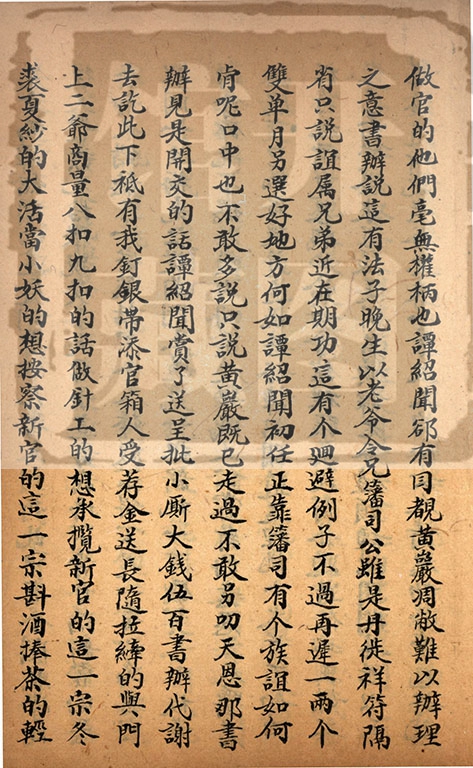 做官的他們毫無權柄也譚紹聞卻有回覩黃巖凋敝難以辦理
之意書辦說這有法子晚生以老爺令兄籓司公雖是丹徙祥符隔
省只說誼属兄弟近在期功這有个廻避例子不過再遲一兩个
雙单月另選好地方何如譚紹聞初任正靠籓司有个族誼如何
肯呢口中也不敢多説只說黃巖既已走過不敢另叨天恩那書
辦見是開交的話譚紹聞賞了送呈批小厮大錢伍百書辦代謝
去訖此下祗有我釘銀帶添官箱人受荐金送長隨拉縴的與門
上二爺商量八扣九扣的話做針工的想承攬新官的這一宗冬
裘夏紗的大活當小妖的想按察新官的這一宗斟酒捧茶的輕